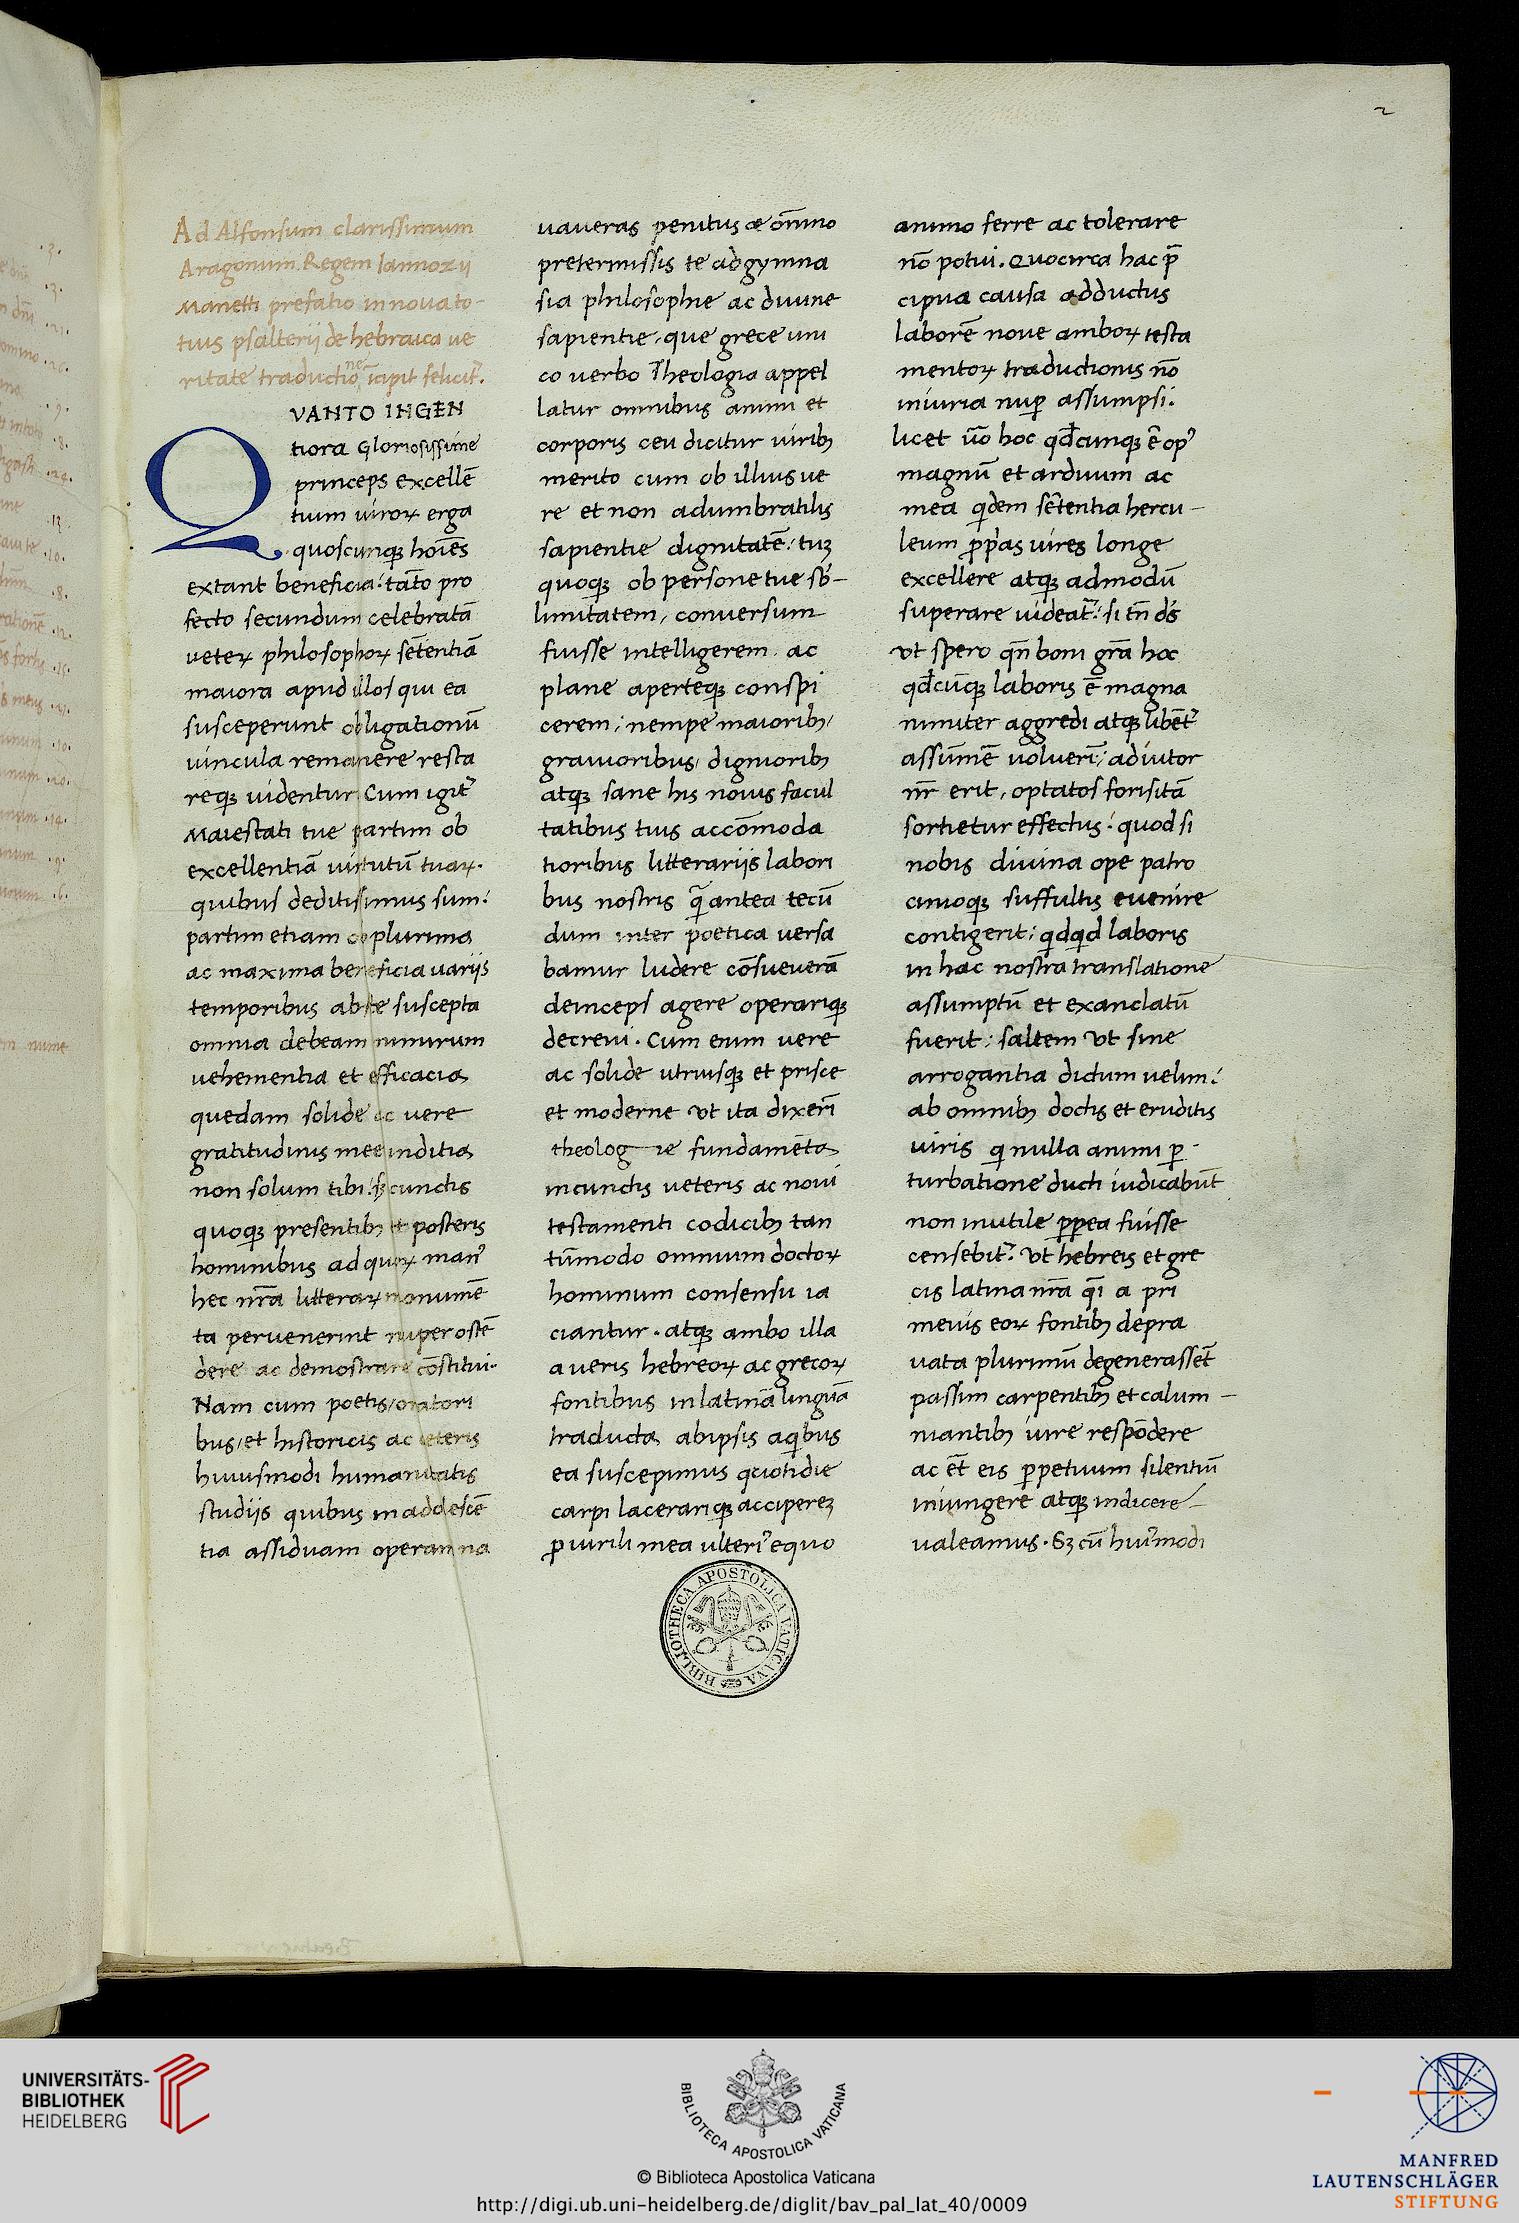 2
Ad Alfonsum clarissimum
Aragonum Regem Iannozij
Manetti prefatio in noua to-
tius psalterij de hebraica ue
ritate traductionē īcipit felicit̄.
QVANTO INGEN
tiora Gloriosissime
princeps excellē
tium uiroꝝ erga
quoscunqꝫ hoīes
extant beneficia: tāto pro
fecto secundum celebratā
ueteꝝ philosophoꝝ sētentiā
maiora apud illos qui ea
susceperunt obligationū
uincula remanere resta
reqꝫ uidentur. Cum igit̄
Maiestati tue partim ob
excellentiā uirtutū tuaꝝ.
quibus deditissimus sum:
partim etiam ob plurima
ac maxima beneficia uarijs
temporibus abs te suscepta
omnia debeam nimirum
uehementia et efficacia
quedam solide ac vere
gratitudinis mee inditia
non solum tibi: sꝫ cunctis
quoqꝫ presentibꝫ et posteris
hominibus ad quoꝝ man9
hec nr̄a litteraꝝ monumē
ta peruenerint nuper ostē
dere ac demostrare cōstitui.
Nam cum poetis/oratori
bus/et historicis ac ceteris
huiusmodi humanitatis
studijs quibus in addescē
tia assiduam operam na
uaueras penitus ac om̄ino
pretermissis te ad gymna
sia philosophie ac diuine
sapientie, que grece uni
co uerbo Theologia appel
latur omnibus animi et
corporis ceu dicitur uiribꝫ
merito cum ob illius ue
re et non adumbratilis
sapientie dignitatē: tuꝫ
quoqꝫ ob persone tue sb̄-
limitatem, conversum
fuisse intelligerem. ac
plane aperteqꝫ conspi
cerem; nempe maioribꝫ/
grauioribus/ dignioribꝫ
atqꝫ sane his nouis facul
tatibus tuis accōmoda
tioribus litterarijs labori
bus nostris q̄ antea tecū
dum inter poetica versa
bamur ludere cōsueuerā
deinceps agere operariqꝫ
decreui. Cum enim uere
ac solide utriusqꝫ et prisce
et moderne vt ita dixerī
theologie fundamēta
in cunctis ueteris ac noui
testamenti codicibꝫ tan
tūmodo omnium doctoꝝ
hominum consensu ia
ciantur. atqꝫ ambo illa
a ueris hebreoꝝ ac grecoꝝ
fontibus in latinā linguā
traducta ab ipsis a qͥbus
ea suscepimus quotidie
carpi lacerariqꝫ accipereꝫ
ꝑ uirili mea ulteri9 equo
animo ferre ac tolerare
nō potui. Quocirca hac p̄
cipua causa adductus
laborē noue amboꝝ testa
mentoꝝ traductionis nō
iniuria nuꝑ assumpsi.
licet ūo hoc qd̄cunqꝫ ē op9
magnū et arduum ac
mea qͥdem sētentia hercu-
leum ꝓprias uires longe
excellere atqꝫ admodū
superare uideat̄: si tn̄ d̄s
vt spero qn̄ boni gr̄a hoc
qd̄cūqꝫ laboris ē magna
nimiter aggredi atqꝫ libēt̄
assumē uoluerī; adiutor
nr̄ erit, optatos forsitā
sortietur effectus: quod si
nobis divina ope patro
cinioqꝫ suffultis evenire
contigerit; qͥdqͥd laboris
in hac nostra translatione
assumptū et exanclatū
fuerit; saltem vt sine
arrogantia dictum uelim:
ab omnibꝫ doctis et eruditis
uiris qͥ nulla animi ꝑ-
turbatione ducti iudicabūt
non inutile ꝓpea fuisse
censebit̄. Vt hebreis et gre
cis latina nr̄a qͣi a pri
meuis eoꝝ fontibꝫ depra
uata plurimū degenerassēt
passim carpentibꝫ et calum-
niantibꝫ iure respōdere
ac ēt eis ꝑpetuum silentiū
iniungere atqꝫ indicere
ualeamus. Sꝫ cū hui9modi
BIBLIOTHECA APOSTOLICA VATICANA
UNIVERSITÄTS-
BIBLIOTHEK
HEIDELBERG
BIBLIOTECA APOSTOLICA VATICANA
© Biblioteca Apostolica Vaticana
http://digi.ub.uni-heidelberg.de/diglit/bav_pal_lat_40/0009
MANFRED
LAUTENSCHLÄGER
STIFTUNG